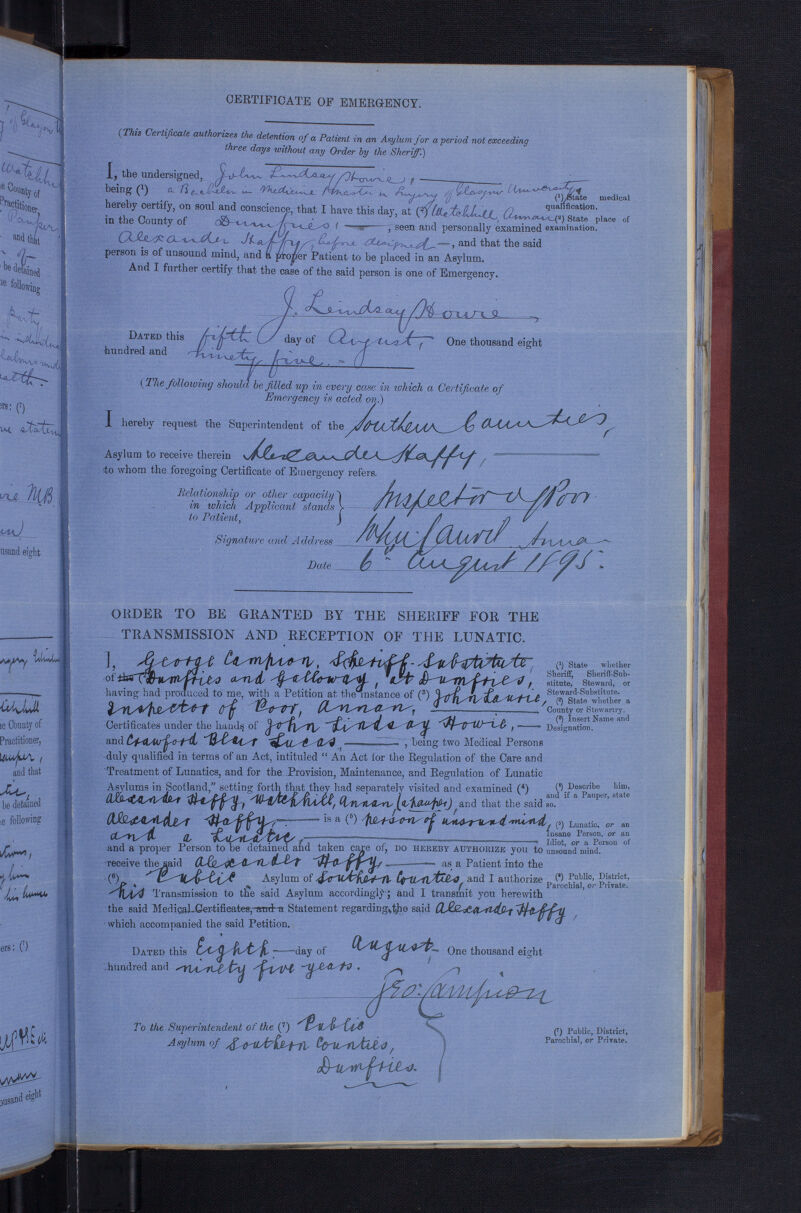 CERTIFICATE OF EMERGENCY.
(This Certificate authorizes the detention of a Patient in an Asylum for a period not exceeding
three days without any Order by the Sheriff.)
I, the undersigned, John Lindsay Howie,
being (¹) a Bachelor in Medicine & Master in Surgery of Glasgow University
(¹) State medical
qualification.
hereby certify, on soul and conscience, that I have this day, at (²) Watchhill, Annan
(²) State place of
examination.
in the County of Dumfries, , seen and personally examined
Alexander Haffy, before designed —, and that the said
person is of unsound mind, and a proper Patient to be placed in an Asylum.
And I further certify that the case of the said person is one of Emergency.
J. Lindsay Howie
DATED this fifth day of August, One thousand eight
hundred and ninety five. -
(The following should be filled up in every case in which a Certificate of
Emergency is acted on.)
I hereby request the Superintendent of the Southern Counties,
Asylum to receive therein Alexander Haffy,
to whom the foregoing Certificate of Emergency refers.
Relationship or other capacity
in which Applicant stands
to Patient,
Inspector of Poor
Signature and Address John Laurie Annan
Date 6th August 1895.
ORDER TO BE GRANTED BY THE SHERIFF FOR THE
TRANSMISSION AND RECEPTION OF THE LUNATIC.
I, George Campion, Sheriff-Substitute,
of the (²) Dumfries and Galloway, at Dumfries,
(¹) State whether
Sheriff, Sheriff-Sub-
stitute, Steward, or
Steward-Substitute.
having had produced to me, with a Petition at the instance of (³) John Laurie,
Inspector of Poor, Annan,
(²) State whether a
County or Stewartry.
(³) Insert Name and
Designation.
Certificates under the hands of John Lindsay Howie, —
and Crawford Blair Lucas, —, being two Medical Persons
duly qualified in terms of an Act, intituled "An Act for the Regulation of the Care and
Treatment of Lunatics, and for the Provision, Maintenance, and Regulation of Lunatic
Asylums in Scotland," setting forth that they had separately visited and examined (⁴)
Alexander Haffy, Watchhill, Annan, (a pauper), and that the said
(⁴) Describe him,
and if a Pauper, state
so.
Alexander Haffy, — is a (⁵) person of unsound mind,
and a Lunatic,
(⁵) Lunatic, or an
Insane Person, or an
Idiot, or a Person of
unsound mind.
and a proper Person to be detained and taken care of, DO HEREBY AUTHORIZE you to
receive the said Alexander Haffy, — as a Patient into the
(⁶) Public Asylum of Southern Counties, and I authorize
(⁶) Public, District,
Parochial, or Private.
his Transmission to the said Asylum accordingly; and I transmit you herewith
the said Medical Certificates, and a Statement regarding the said Alexander Haffy,
which accompanied the said Petition.
DATED this Eighth — day of August — One thousand eight
hundred and ninety five years.
Geo: Campion
To the Superintendent of the (⁷) Public
Asylum of Southern Counties,
Dumfries.
(⁷) Public, District,
Parochial, or Private.